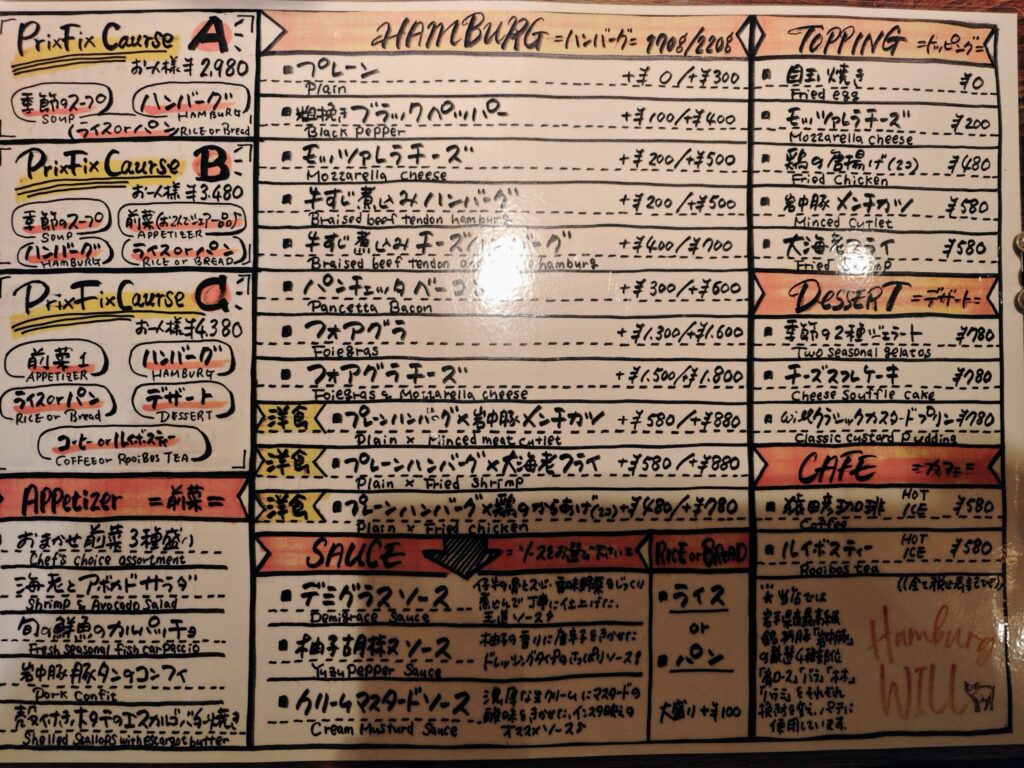 PrixFix Caurse A
お一人様¥2,980
季節のスープ
SOUP
ハンバーグ
HAMBURG
ライスorパン
RICE or Bread
PrixFix Caurse B
お一人様¥3.480
季節のスープ
SOUP
前菜
APPETIZER
ハンバーグ
HAMBURG
ライスorパン
RICE or BREAD
PrixFix Caurse C
お一人様¥4,380
前菜1
APPETIZER
ハンバーグ
HAMBURG
ライスorパン
RICE or Bread
デザート
DESSERT
コーヒーorルイボスティー
COFFEE or ROOIBOS TEA
APPetizer =前菜=
おまかせ前菜3種盛り
Chef's choice assortment
海老とアボカドサラダ
Shrimp & Avocado salad
旬の鮮魚のカルパッチョ
Fresh seasonal fish carpaccio
岩中豚 豚タンのコンフィ
Pork Confit
殻付き帆タテのエスカルゴバター焼き
Shelled Scallops with escargot butter
HAMBURG =ハンバーグ= 170g/220g
プレーン +¥0/+¥300
Plain
粗挽きブラックペッパー +¥100/+¥400
Black Pepper
モッツァレラチーズ +¥200/+¥500
Mozzarella cheese
牛すじ煮込みハンバーグ +¥200/+¥500
Braised beef tendon hamburg
牛すじ煮込みチーズハンバーグ +¥400/¥700
Braised beef tendon hamburg
パンチェッタベーコン +¥300/+¥600
Pancetta Bacon
フォアグラ +¥1.300/+¥1.600
Foiegras
フォアグラチーズ +¥1.500/+¥1.800
Foiegras & Mozzarella cheese
洋食 プレーンハンバーグ×岩中豚メンチカツ +¥580/+¥880
Plain × Miinced meat cutlet
洋食 プレーンハンバーグ×大海老フライ +¥580/+¥880
Plain × Fried Shrimp
洋食 プレーンハンバーグ×鶏のからあげ(2コ) +¥480/+¥780
Plain × Fried chicken
SAUCE =ソースをお選び下さい=
デミグラスソース
Demigrace Sauce
仔牛の骨とスジ、香味野菜をじっくり
煮込んで丁寧に仕上げた、
王道ソース♪
柚子胡椒ソース
Yuzu Pepper Sauce
柚子の香りに唐辛子をきかせた
ドレッシングタイプのさっぱりソース♪
クリームマスタードソース
Cream Mustard Sauce
濃厚な生クリームにマスタードの
酸味をきかせた、インスタ映えの
オススメソース♪
RICE or BREAD
ライス
or
パン
大盛り+¥100
TOPPING =トッピング=
目玉焼き ¥0
Fried egg
モッツァレラチーズ ¥200
Mozzarella cheese
鶏の唐揚げ(2コ) ¥480
Fried Chicken
岩中豚メンチカツ ¥580
Minced Cutlet
大海老フライ ¥580
Fried Shrimp
DESSERT =デザート=
季節の2種ジェラート ¥780
Two seasonal gelatos
チーズスフレケーキ ¥780
Cheese souffle cake
Willクラシックカスタードプリン ¥780
Classic custard pudding
CAFE =カフェ=
猿田彦珈琲 HOT ICE ¥580
Coffee
ルイボスティー HOT ICE ¥580
Rooibos tea
※当店では
岩手県産最高級
銘柄豚「岩中豚」
の厳選4種部位
「肩ロース」「バラ」「モモ」
使用しています。
Hamburg
WILL